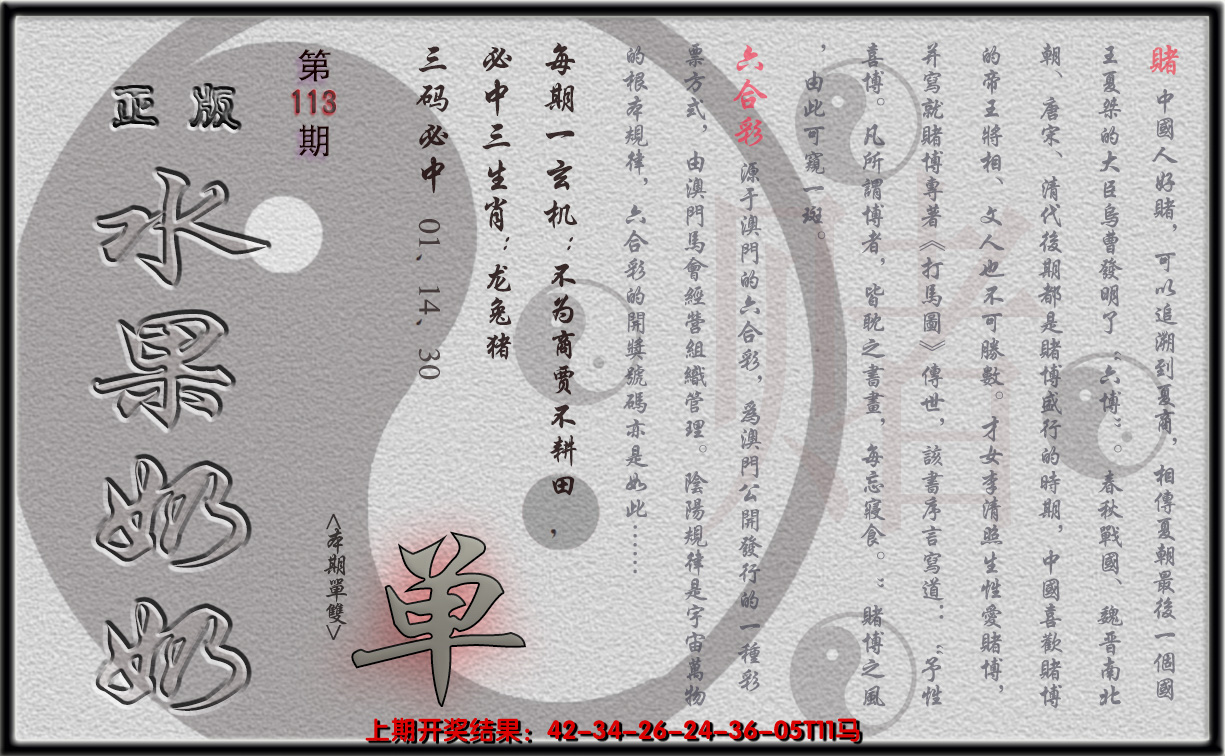 賭 中國人好賭，可以追溯到夏商，相傳夏朝最後一個國
王夏桀的大臣烏曹發明了“六博”。春秋戰國、魏晋南北
朝、唐宋、清代後期都是賭博盛行的時期，中國喜歡賭博
的帝王將相、文人也不可勝數。才女李清照生性愛賭博，
并寫就賭博專著《打馬圖》傳世，該書序言寫道：“予性
喜博。凡所謂博者，皆耽之書畫，每忘寢食。”賭博之風
，由此可窺一斑。
六合彩 源于澳門的六合彩，爲澳門公開發行的一種彩
票方式，由澳門馬會經營組織管理。陰陽規律是宇宙萬物
的根本規律，六合彩的開獎號碼亦是如此……
每期一玄机：不为商贾不耕田，
必中三生肖：龙兔猪
三码必中 01、14、30
第113期
正版
水果奶奶
<本期單雙>
单
賭
上期开奖结果：42-34-26-24-36-05T11马